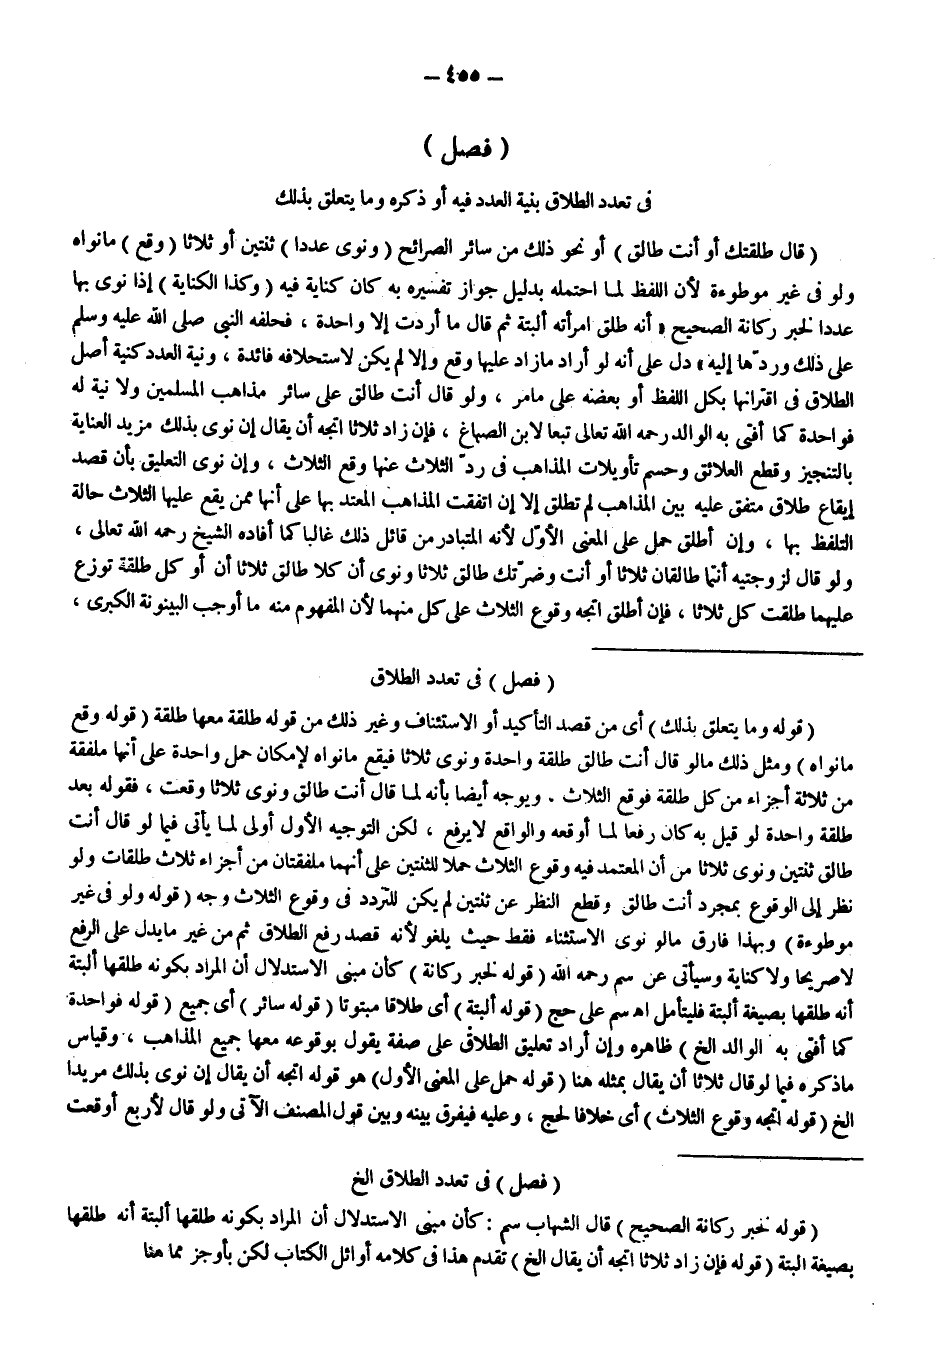 – ٤٥٥ –
( فصل )
فى تعدد الطلاق بنية العدد فيه أو ذكره وما يتعلق بذلك
( قال طلقتك أو أنت طالق ) أو نحو ذلك من سائر الصرائح ( ونوى عددا ) ثنتين أو ثلاثا ( وقع ) مانواه
ولو فى غير موطوءة لأن اللفظ لما احتمله بدليل جواز تفسيره به كان كناية فيه ( وكذا الكناية ) إذا نوى بها
عددا لخبر ركانة الصحيح « أنه طلق امرأته ألبتة ثم قال ما أردت إلا واحدة ، فحلفه النبى صلى الله عليه وسلم
على ذلك وردّها إليه » دل على أنه لو أراد مازاد عليها وقع وإلا لم يكن لاستحلافه فائدة ، ونية العدد كنية أصل
الطلاق فى اقترانها بكل اللفظ أو بعضه على مامر ، ولو قال أنت طالق على سائر مذاهب المسلمين ولا نية له
فواحدة كما أفتى به الوالد رحمه الله تعالى تبعا لابن الصباغ ، فإن زاد ثلاثا اتجه أن يقال إن نوى بذلك مزيد العناية
بالتنجيز وقطع العلائق وحسم تأويلات المذاهب فى ردّ الثلاث عنها وقع الثلاث ، وإن نوى التعليق بأن قصد
إيقاع طلاق متفق عليه بين المذاهب لم تطلق إلا إن اتفقت المذاهب المعتد بها على أنها ممن يقع عليها الثلاث حالة
التلفظ بها ، وإن أطلق حمل على المعنى الأوّل لأنه المتبادر من قائل ذلك غالبا كما أفاده الشيخ رحمه الله تعالى ،
ولو قال لزوجتيه أنتما طالقان ثلاثا أو أنت وضرّتك طالق ثلاثا ونوى أن كلا طالق ثلاثا أن أو كل طلقة توزع
عليهما طلقت كل ثلاثا ، فإن أطلق اتجه وقوع الثلاث على كل منهما لأن المفهوم منه ما أوجب البينونة الكبرى ،
( فصل ) فى تعدد الطلاق
( قوله وما يتعلق بذلك ) أى من قصد التأكيد أو الاستئناف وغير ذلك من قوله طلقة معها طلقة ( قوله وقع
مانواه ) ومثل ذلك مالو قال أنت طالق طلقة واحدة ونوى ثلاثا فيقع مانواه لإمكان حمل واحدة على أنها ملفقة
من ثلاثة أجزاء من كل طلقة فوقع الثلاث . ويوجه أيضا بأنه لما قال أنت طالق ونوى ثلاثا وقعت ، فقوله بعد
طلقة واحدة لو قيل به كان رفعا لما أوقعه والواقع لا يرفع ، لكن التوجيه الأول أولى لما يأتى فيما لو قال أنت
طالق ثنتين ونوى ثلاثا من أن المعتمد فيه وقوع الثلاث حملا للثنتين على أنهما ملفقتان من أجزاء ثلاث طلقات ولو
نظر إلى الوقوع بمجرد أنت طالق وقطع النظر عن ثنتين لم يكن للتردد فى وقوع الثلاث وجه ( قوله ولو فى غير
موطوءة ) وبهذا فارق مالو نوى الاستثناء فقط حيث يلغو لأنه قصد رفع الطلاق ثم من غير مايدل على الرفع
لاصريحا ولا كناية وسيأتى عن سم رحمه الله ( قوله لخبر ركانة ) كأن مبنى الاستدلال أن المراد بكونه طلقها ألبتة
أنه طلقها بصيغة ألبتة فليتأمل اهـ سم على حج ( قوله ألبتة ) أى طلاقا مبتوتا ( قوله سائر ) أى جميع ( قوله فواحدة
كما أفتى به الوالد الخ ) ظاهره وإن أراد تعليق الطلاق على صفة يقول بوقوعه معها جميع المذاهب ، وقياس
ماذكره فيما لو قال ثلاثا أن يقال بمثله هنا ( قوله حمل على المعنى الأول ) هو قوله اتجه أن يقال إن نوى بذلك مريدا
الخ ( قوله اتجه وقوع الثلاث ) أى خلافا لحج ، وعليه فيفرق بينه وبين قول المصنف الآتى ولو قال لأربع أوقعت
( فصل ) فى تعدد الطلاق الخ
( قوله لخبر ركانة الصحيح ) قال الشهاب سم : كأن مبنى الاستدلال أن المراد بكونه طلقها ألبتة أنه طلقها
بصيغة البتة ( قوله فإن زاد ثلاثا اتجه أن يقال الخ ) تقدم هذا فى كلامه أوائل الكتاب لكن بأوجز مما هنا